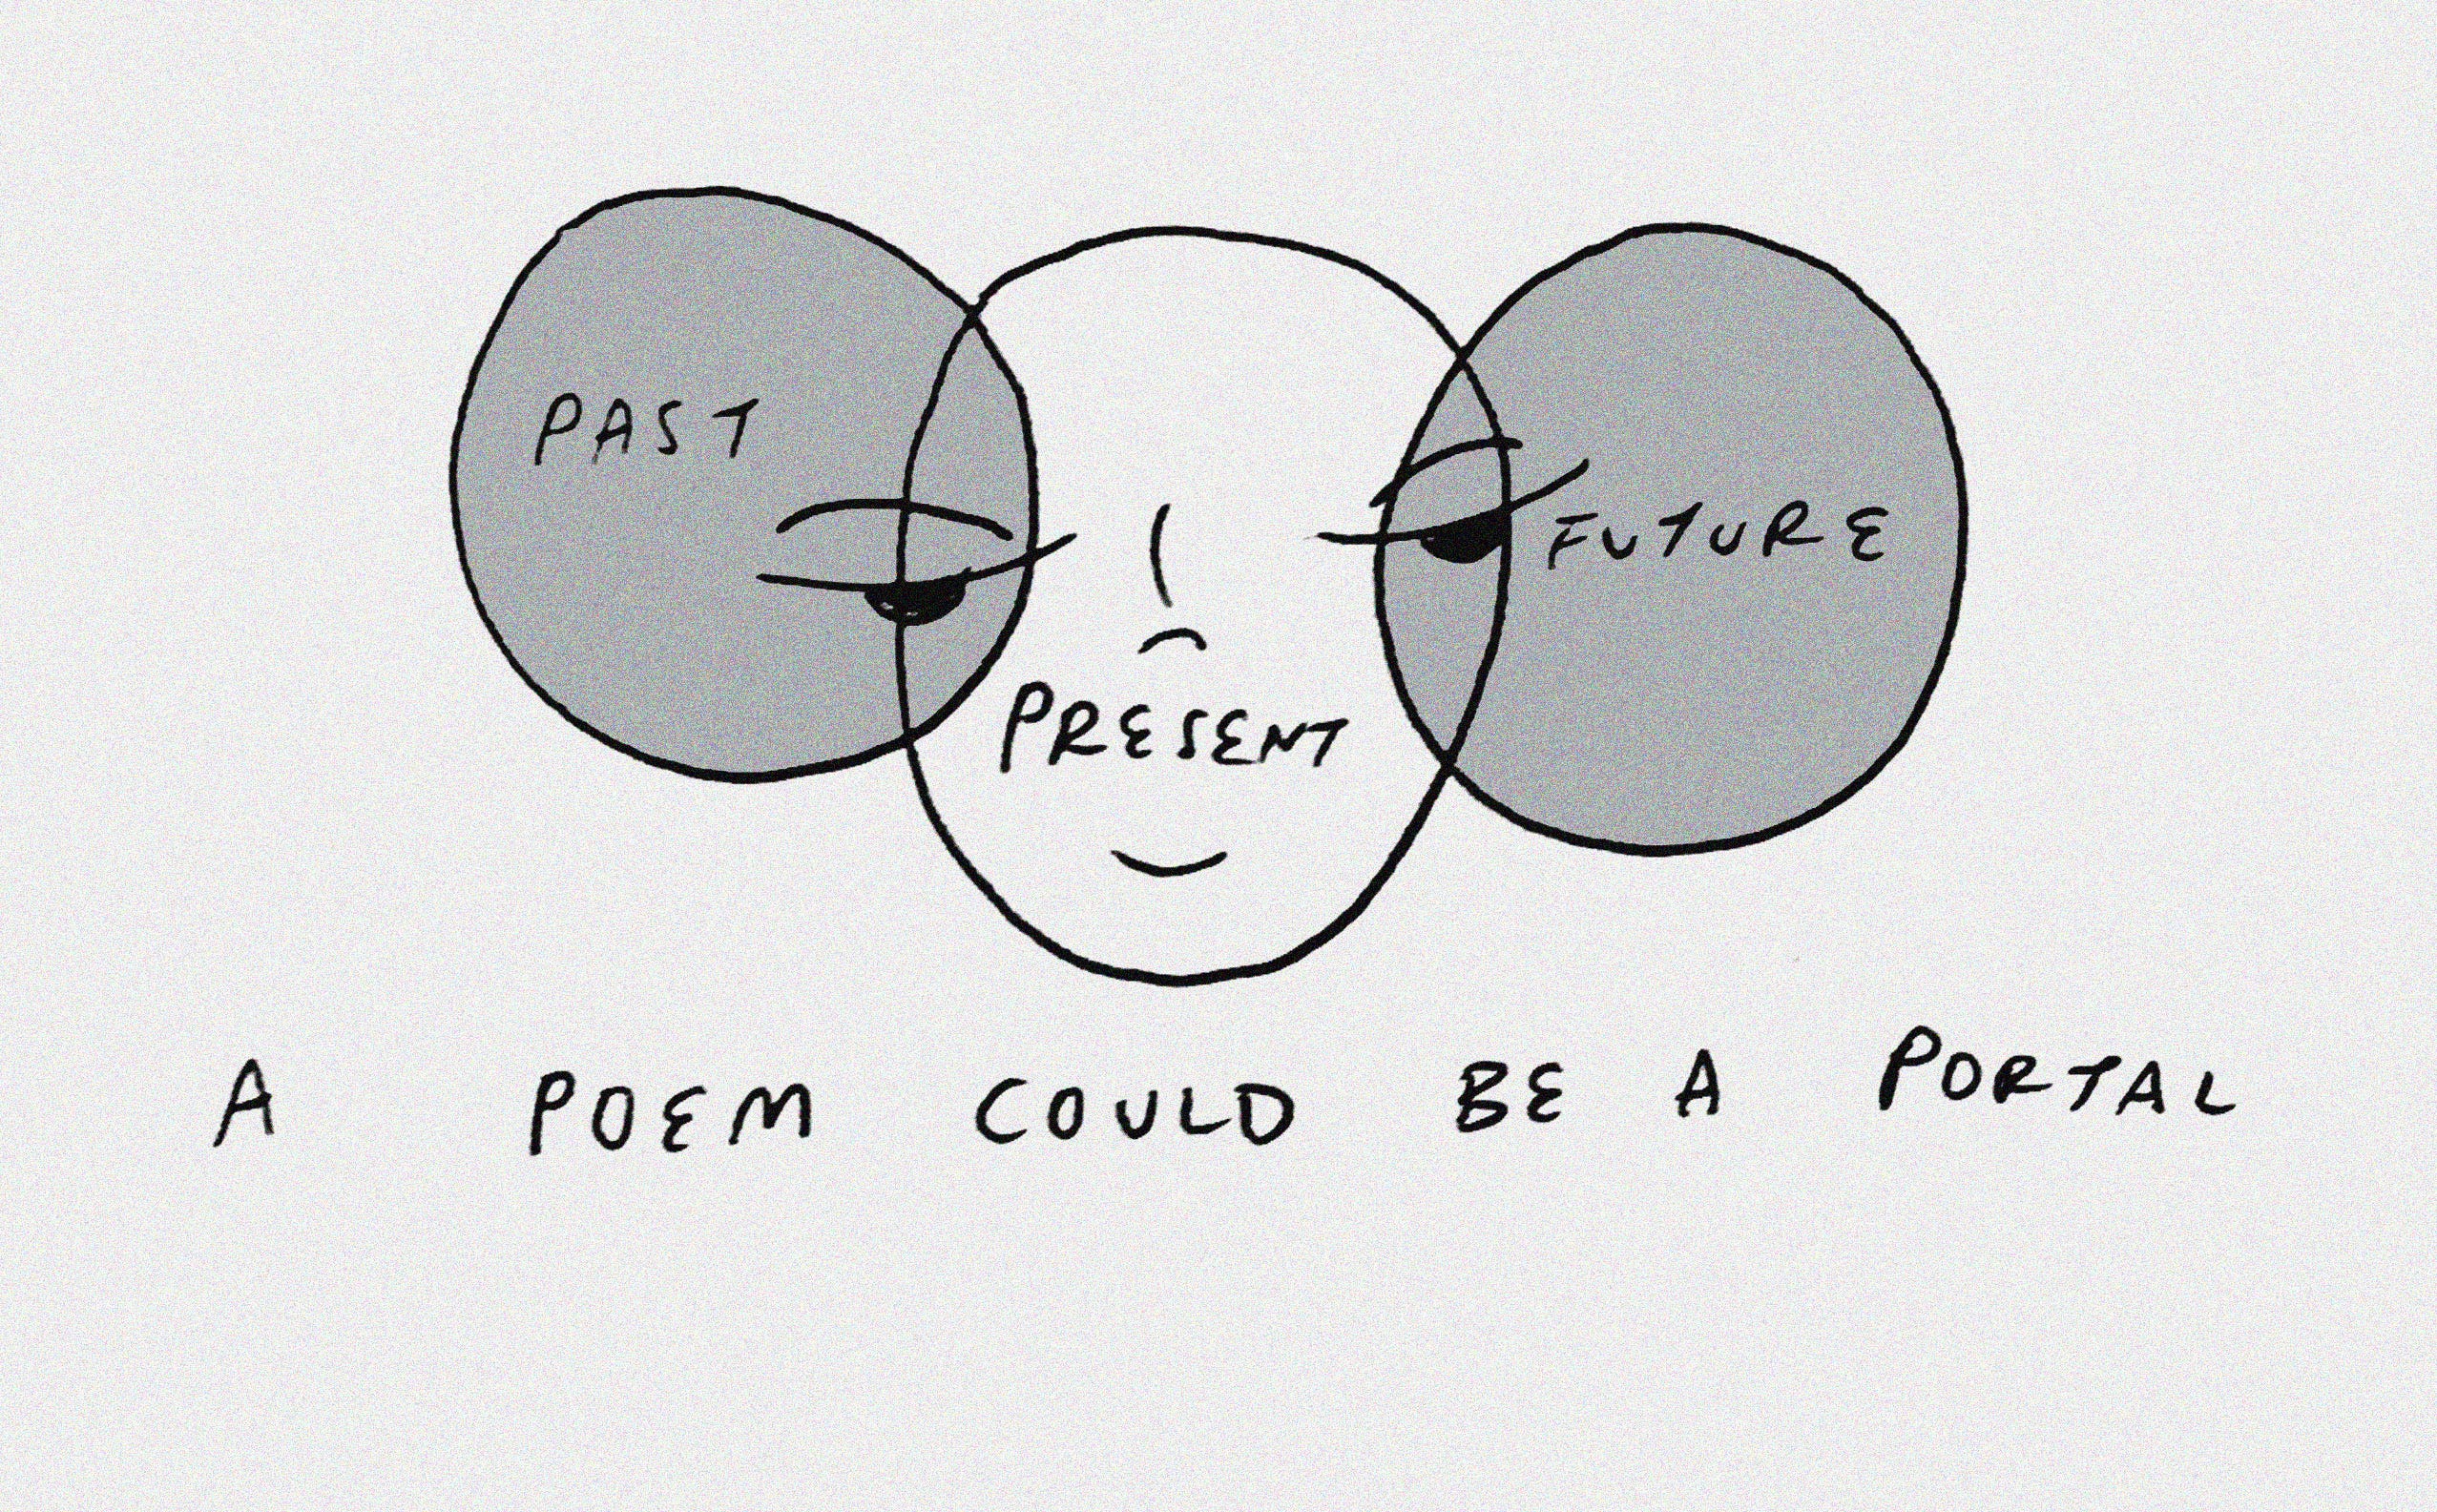 PAST
FUTURE
PRESENT
A POEM COULD BE A PORTAL